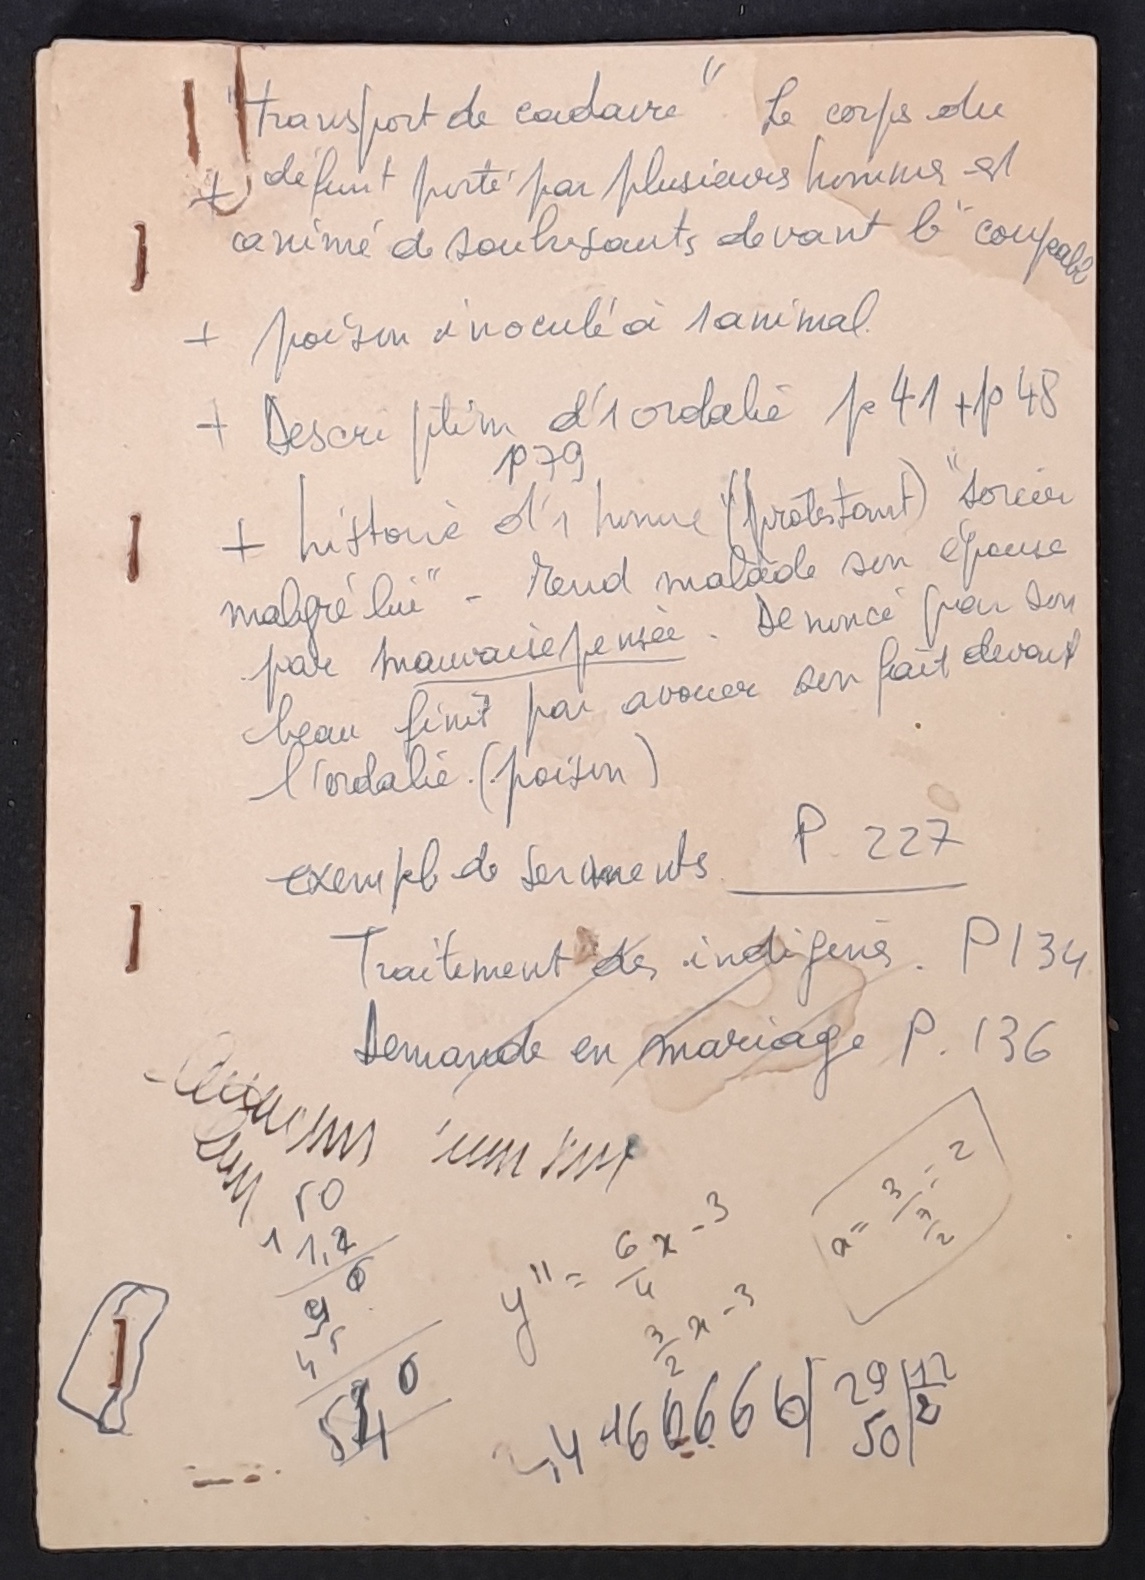 "transport de cadavre" Le corps du
+ défunt porté par plusieurs hommes est
animé de soubresauts devant le "coupable
+ poison inoculé à 1 animal.
+ Description d'1 ordalie p 41 + p 48
p79
+ histoire d'1 homme (protestant) "sorcier
malgré lui" - Rend malade son épouse
par mauvaise pensée. Dénoncé par son
beau finit par avouer son fait devant
l'ordalie. (poison)
exemple de serments P. 227
Traitement des indigènes. P134
Demande en mariage P. 136
y'' = 6/4 x - 3
3/2 x - 3